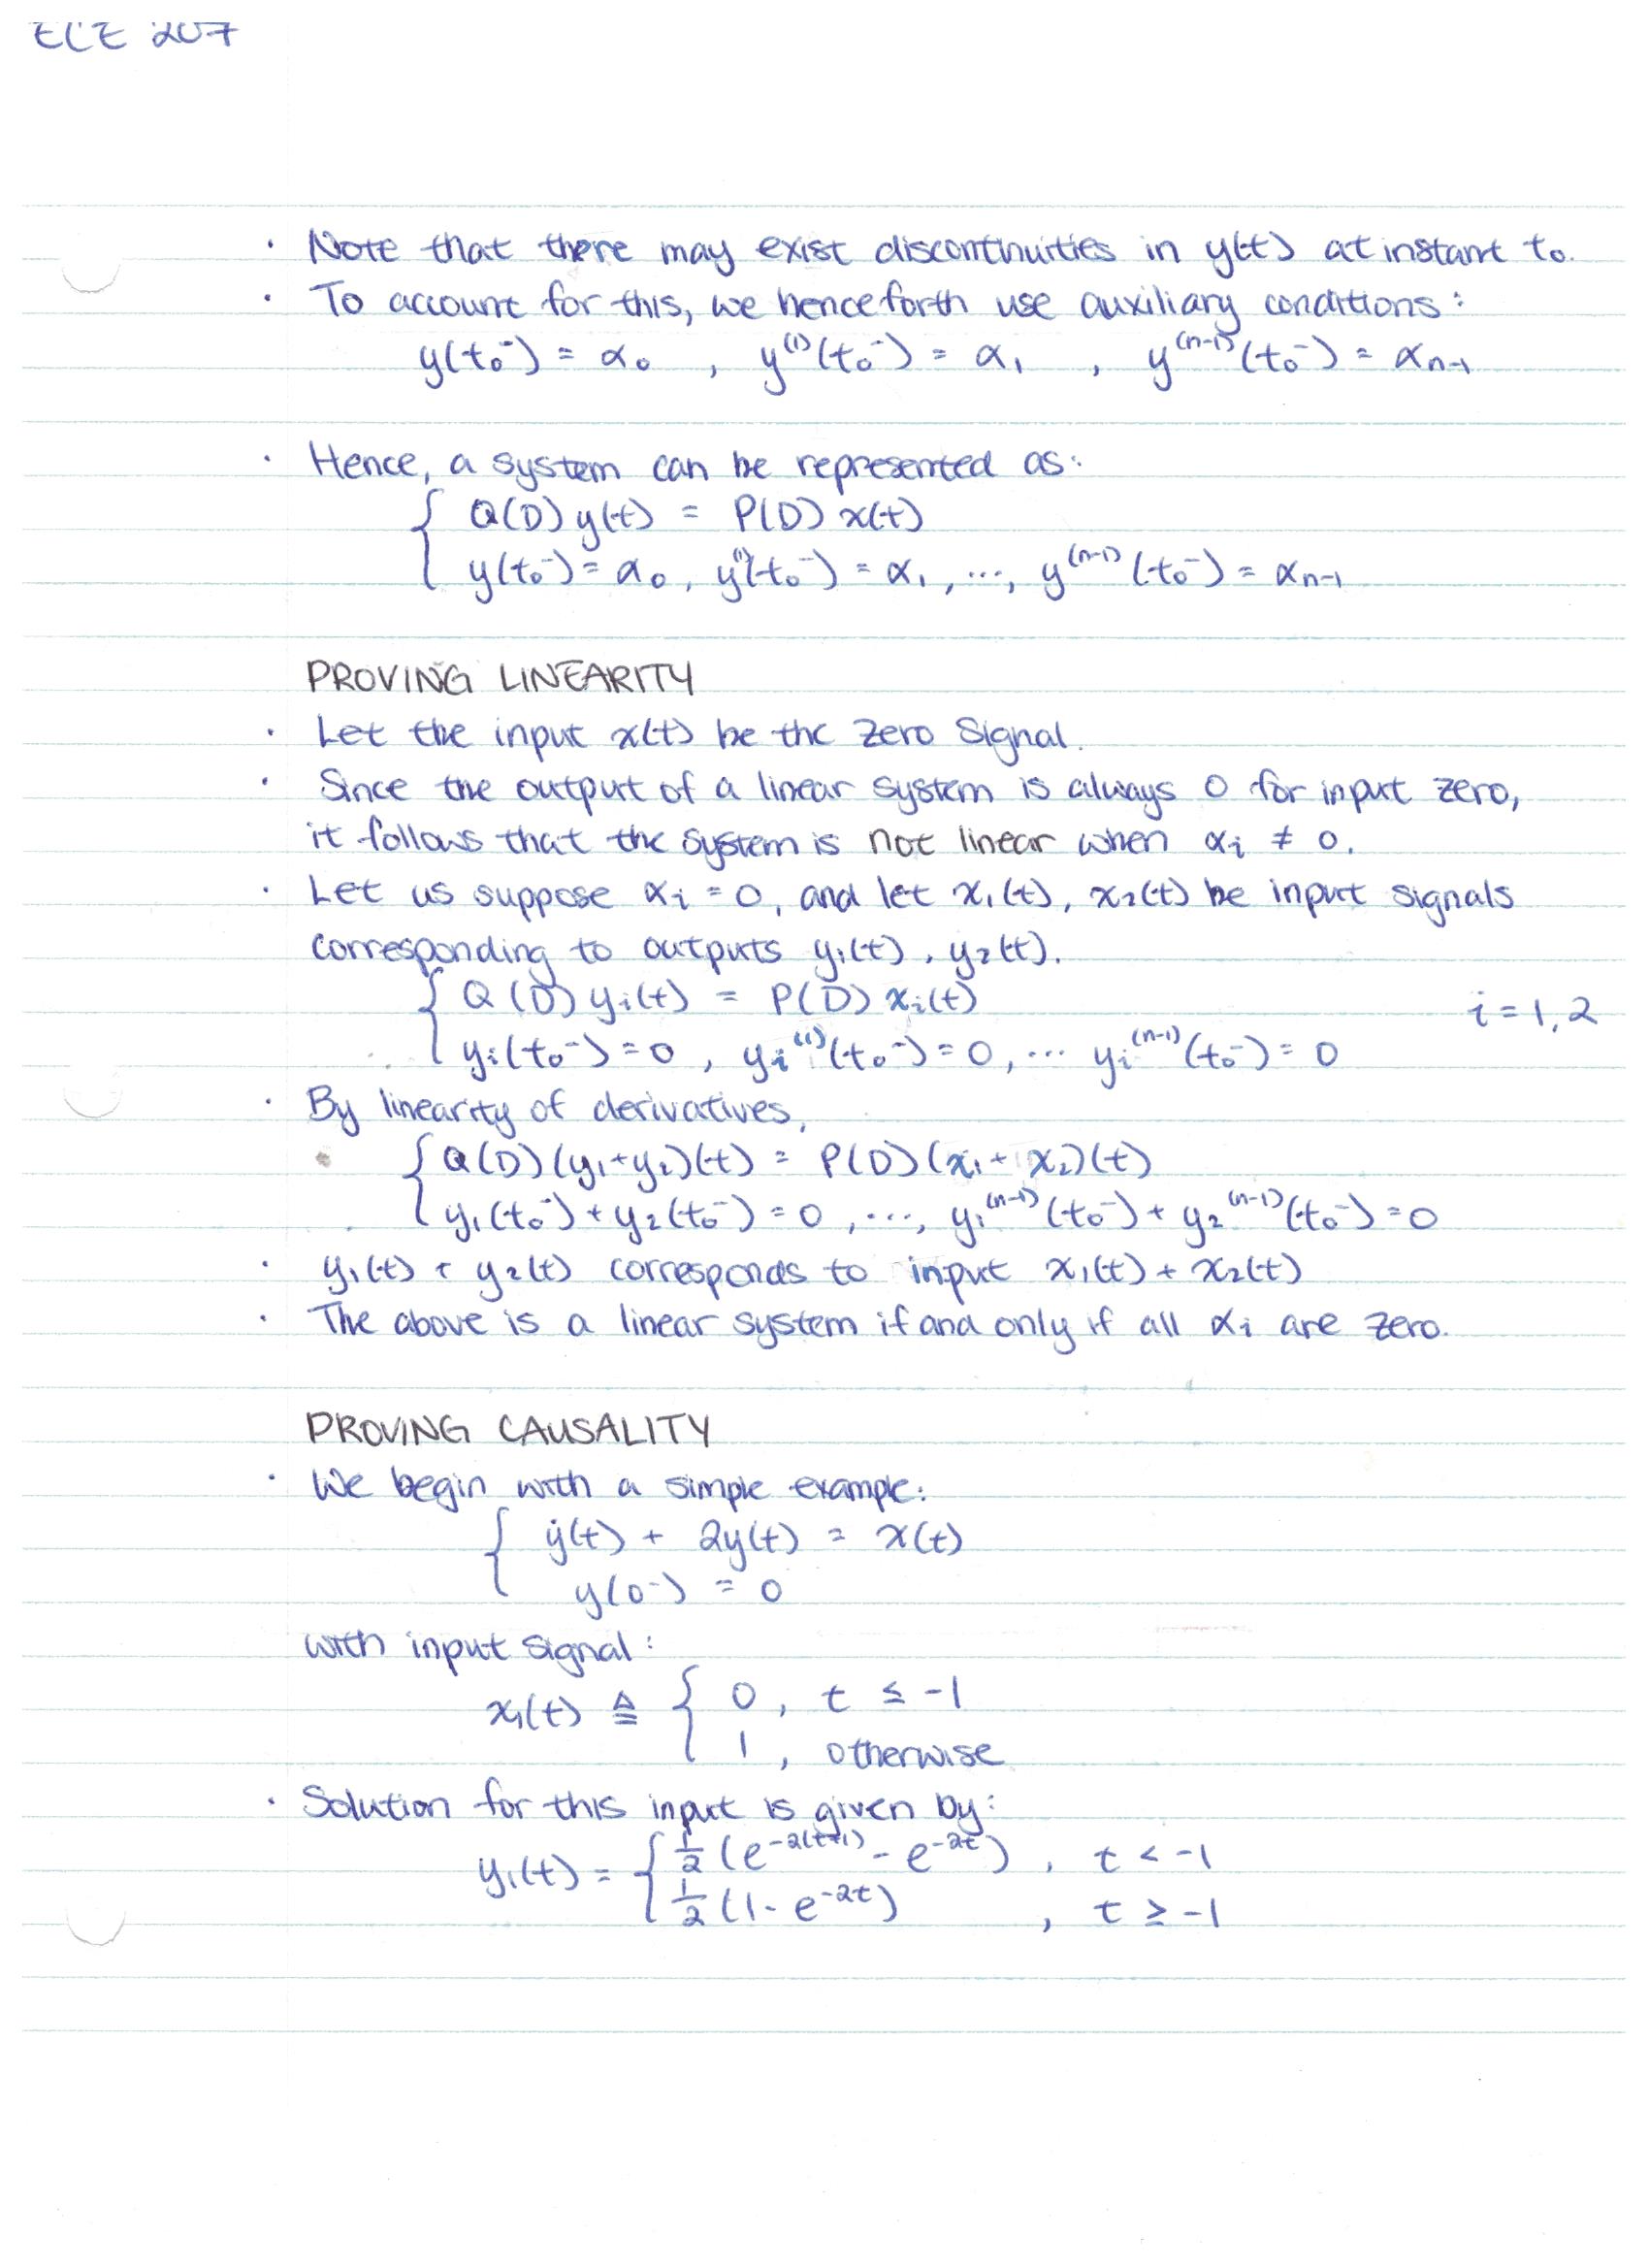 ECE 207
· Note that there may exist discontinuities in y(t) at instant t₀.
· To account for this, we henceforth use auxiliary conditions:
y(t₀⁻) = α₀ , y⁽¹⁾(t₀⁻) = α₁ , y⁽ⁿ⁻¹⁾(t₀⁻) = αₙ₋₁
· Hence, a system can be represented as:
{ Q(D) y(t) = P(D) x(t)
y(t₀⁻) = α₀, y⁽¹⁾(t₀⁻) = α₁, ..., y⁽ⁿ⁻¹⁾(t₀⁻) = αₙ₋₁
PROVING LINEARITY
· Let the input x(t) be the zero signal.
· Since the output of a linear system is always 0 for input zero,
it follows that the system is not linear when αᵢ ≠ 0.
· Let us suppose αᵢ = 0, and let x₁(t), x₂(t) be input signals
corresponding to outputs y₁(t), y₂(t).
{ Q(D) yᵢ(t) = P(D) xᵢ(t) i = 1, 2
yᵢ(t₀⁻) = 0 , yᵢ⁽¹⁾(t₀⁻) = 0, ... yᵢ⁽ⁿ⁻¹⁾(t₀⁻) = 0
· By linearity of derivatives,
{ Q(D)(y₁+y₂)(t) = P(D)(x₁ + x₂)(t)
y₁(t₀⁻) + y₂(t₀⁻) = 0 , ..., y₁⁽ⁿ⁻¹⁾(t₀⁻) + y₂⁽ⁿ⁻¹⁾(t₀⁻) = 0
· y₁(t) + y₂(t) corresponds to input x₁(t) + x₂(t)
· The above is a linear system if and only if all αᵢ are zero.
PROVING CAUSALITY
· We begin with a simple example:
{ ẏ(t) + 2y(t) = x(t)
y(0⁻) = 0
with input signal:
x₁(t) ≜ { 0 , t ≤ -1
1 , otherwise
· Solution for this input is given by:
y₁(t) = { ½ (e^-2(t+1) - e^-2t) , t < -1
½ (1 - e^-2t) , t ≥ -1